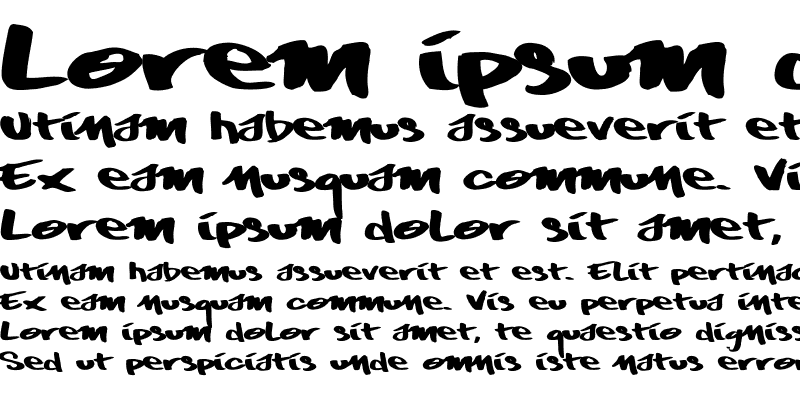 Lorem ipsum
Utinam habemus assueverit et
Ex eam nusquam commune. Vi
Lorem ipsum dolor sit amet,
Utinam habemus assueverit et est. Elit pertinac
Ex eam nusquam commune. Vis eu perpetua inte
Lorem ipsum dolor sit amet, te quaestio digniss
Sed ut perspiciatis unde omnis iste natus error